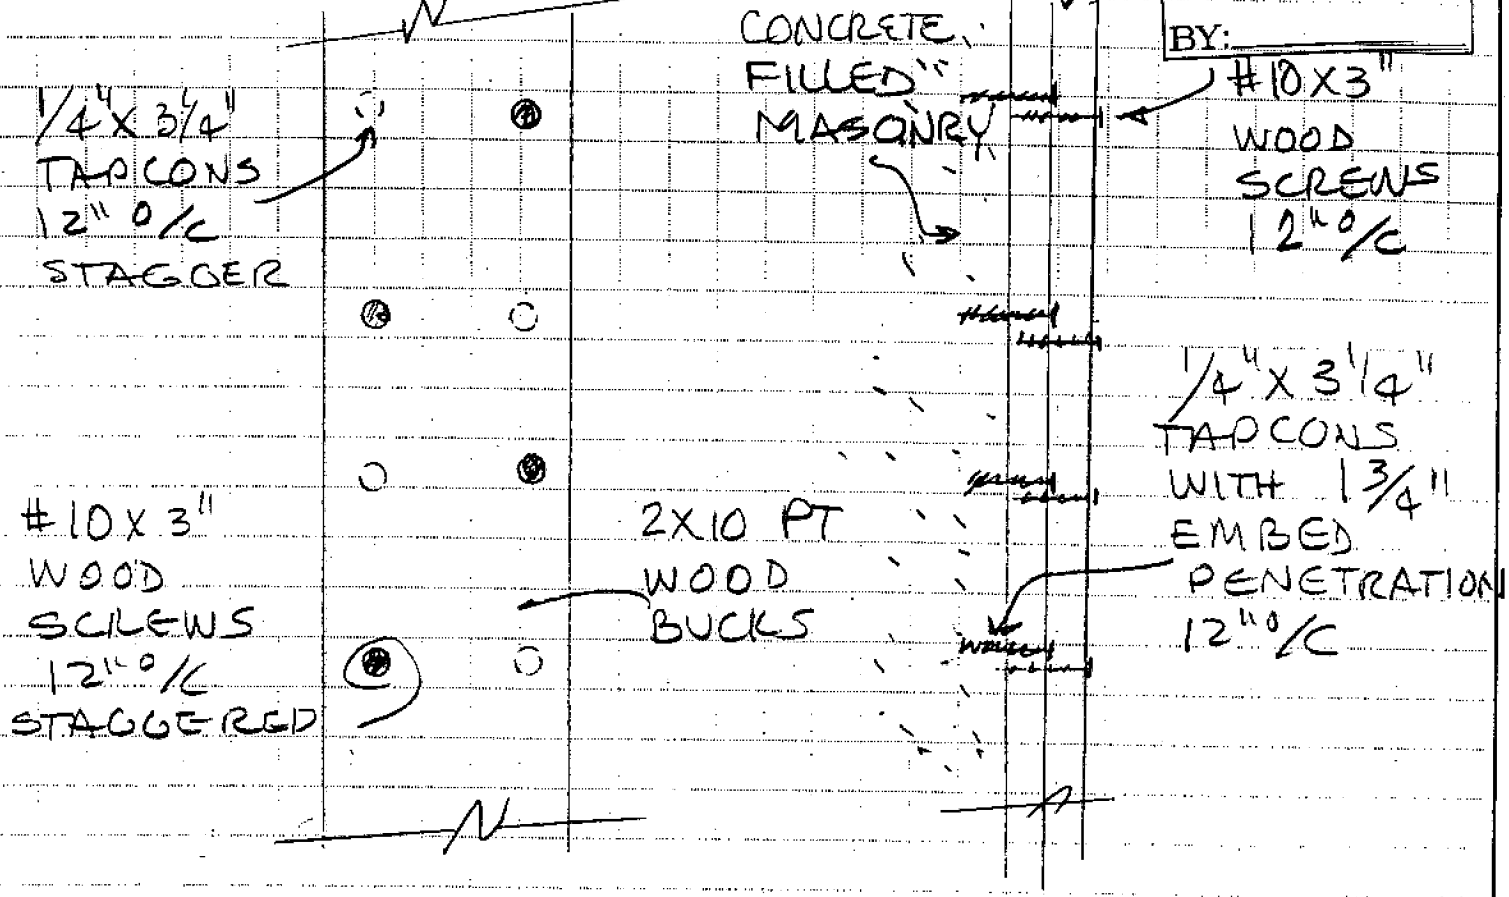 1/4" X 3 1/4"
TAPCONS
12" O/C
STAGGER
CONCRETE
FILLED
MASONRY
BY:
#10 X 3"
WOOD
SCREWS
12" O/C
1/4" X 3 1/4"
TAPCONS
WITH 1 3/4"
EMBED
PENETRATION
12" O/C
#10 X 3"
WOOD
SCREWS
12" O/C
STAGGERED
2X10 PT
WOOD
BUCKS